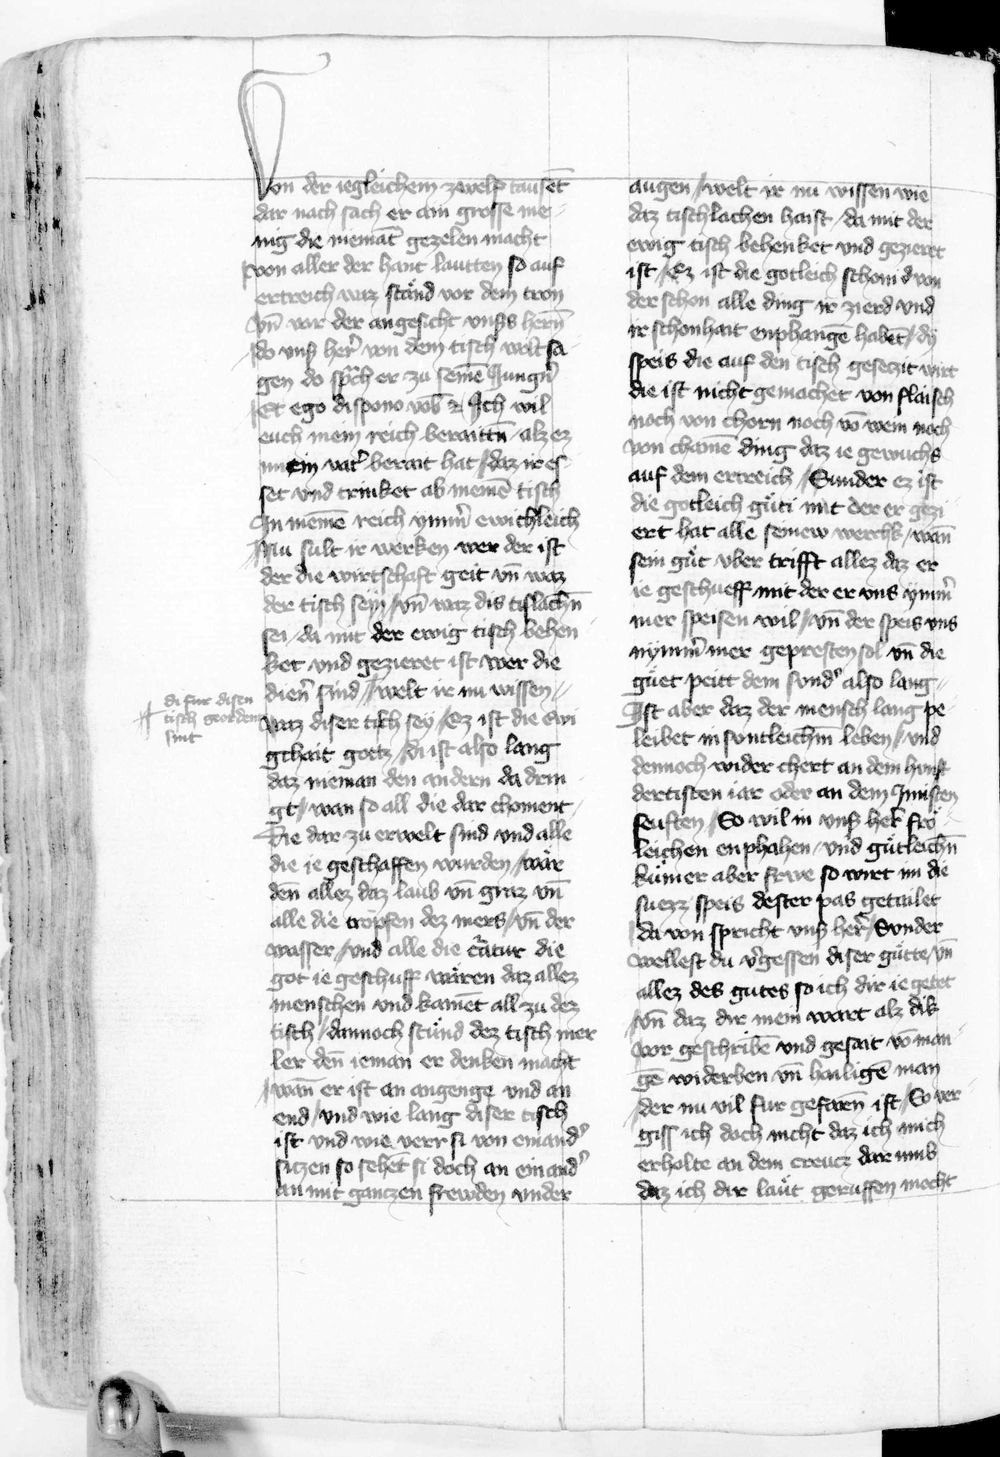 Von der iegleichem zwelf tausēt
dar nach sach er ain grosse me-
nig die niemāt gezelen macht
von aller der hant lautten so auf
ertreich waz stånd vor dem tron
vn̄ vor der angesicht vnsers hern̄
do vnser her von dem tisch wolt sa-
gen do sprch er zu seinē Jungern
Et ego dispono vob̄ Ich wil
euch mein reich beraittn̄ alz ez
mein vat' berait hat / daz ir es-
set vnd trinket ab meinē tisch
In meinē reich ymm̄ ewichleich
Nu sult ir merken wer der ist
der die wirtschaft geit vn̄ waz
der tisch seÿ / vn̄ waz dis tislachn̄
sei / da mit der ewig tisch behen-
ket vnd gezieret ist wer die
dien̄ sind / welt ir nu wissen
di fur disen
tisch geordent
sint
waz diser tisch seÿ / Ez ist die ewi
gchait gotz / di ist also lang
daz nieman den andern da drin-
gt / wan so all die dar choment
Die dar zu erwelt sind vnd alle
die ie geschaffen wurden / wår
den̄ allez daz laub vn̄ graz vn̄
alle die tropfen dez mers / vn̄ der
wasser / vnd alle die c̄atur die
got ie geschuff wåren daz allez
menschen vnd kament all zu dez
tisch / dannoch stůnd dez tisch mer
ler den̄ ieman er denken macht
wan̄ er ist an angenge vnd an
end / vnd wie lang diser tisch
ist vnd wie verr si von einand'
siczen so sehēt si doch an einand'
an mit gantzen frewden vnder
augen / welt ir nu wissen wie
daz tischlachen haist / da mit der
ewig tisch behenket vnd gezieret
ist / Ez ist die gotleich schoni d von
der schon alle ding ir zierd vnd
ir schonhait enphangē habēt / dÿ
speis die auf den tisch gesetzit wirt
die ist nicht gemachet von flaisch
noch von chorn noch vō wein noch
von chainē ding daz ie gewuchs
auf dem ertreich / Sunder ez ist
die gotleich gůti mit der er gezi
ert hat alle seinew werchk / wan̄
sein gůt vber trifft allez daz er
ie geschueff mit der er vns ymm̄
mer speisen wil / vn̄ der speis vns
nymm̄ mer gepresten sol vn̄ die
gůet peitt dem sund' also lang
Ist aber daz der mensch lang pe-
leibet in suntleichm̄ leben / vnd
dennoch wider chert an dem hunt
dertisten iar oder an dem Jungisten
seuften / So wil in vns' her frö-
leichen enphahen / vnd gůtleichn̄
kůmer aber frwe so wirt im die
suezz speis dester pas getailet
da von spricht vns' her / Sunder
wellest du v'gessen diser gůtte / vn̄
allez des gutes so ich dir ie getet
vn̄ daz dir mein wart alz dik
vor geschribē vnd gesait vō man-
gē widerben vn̄ hailigē man
der nu vil fur gefaren ist / So ver
giss ich doch nicht daz ich mich
erholte an dem creucz dar vmb
daz ich dir laůt geruffen mocht